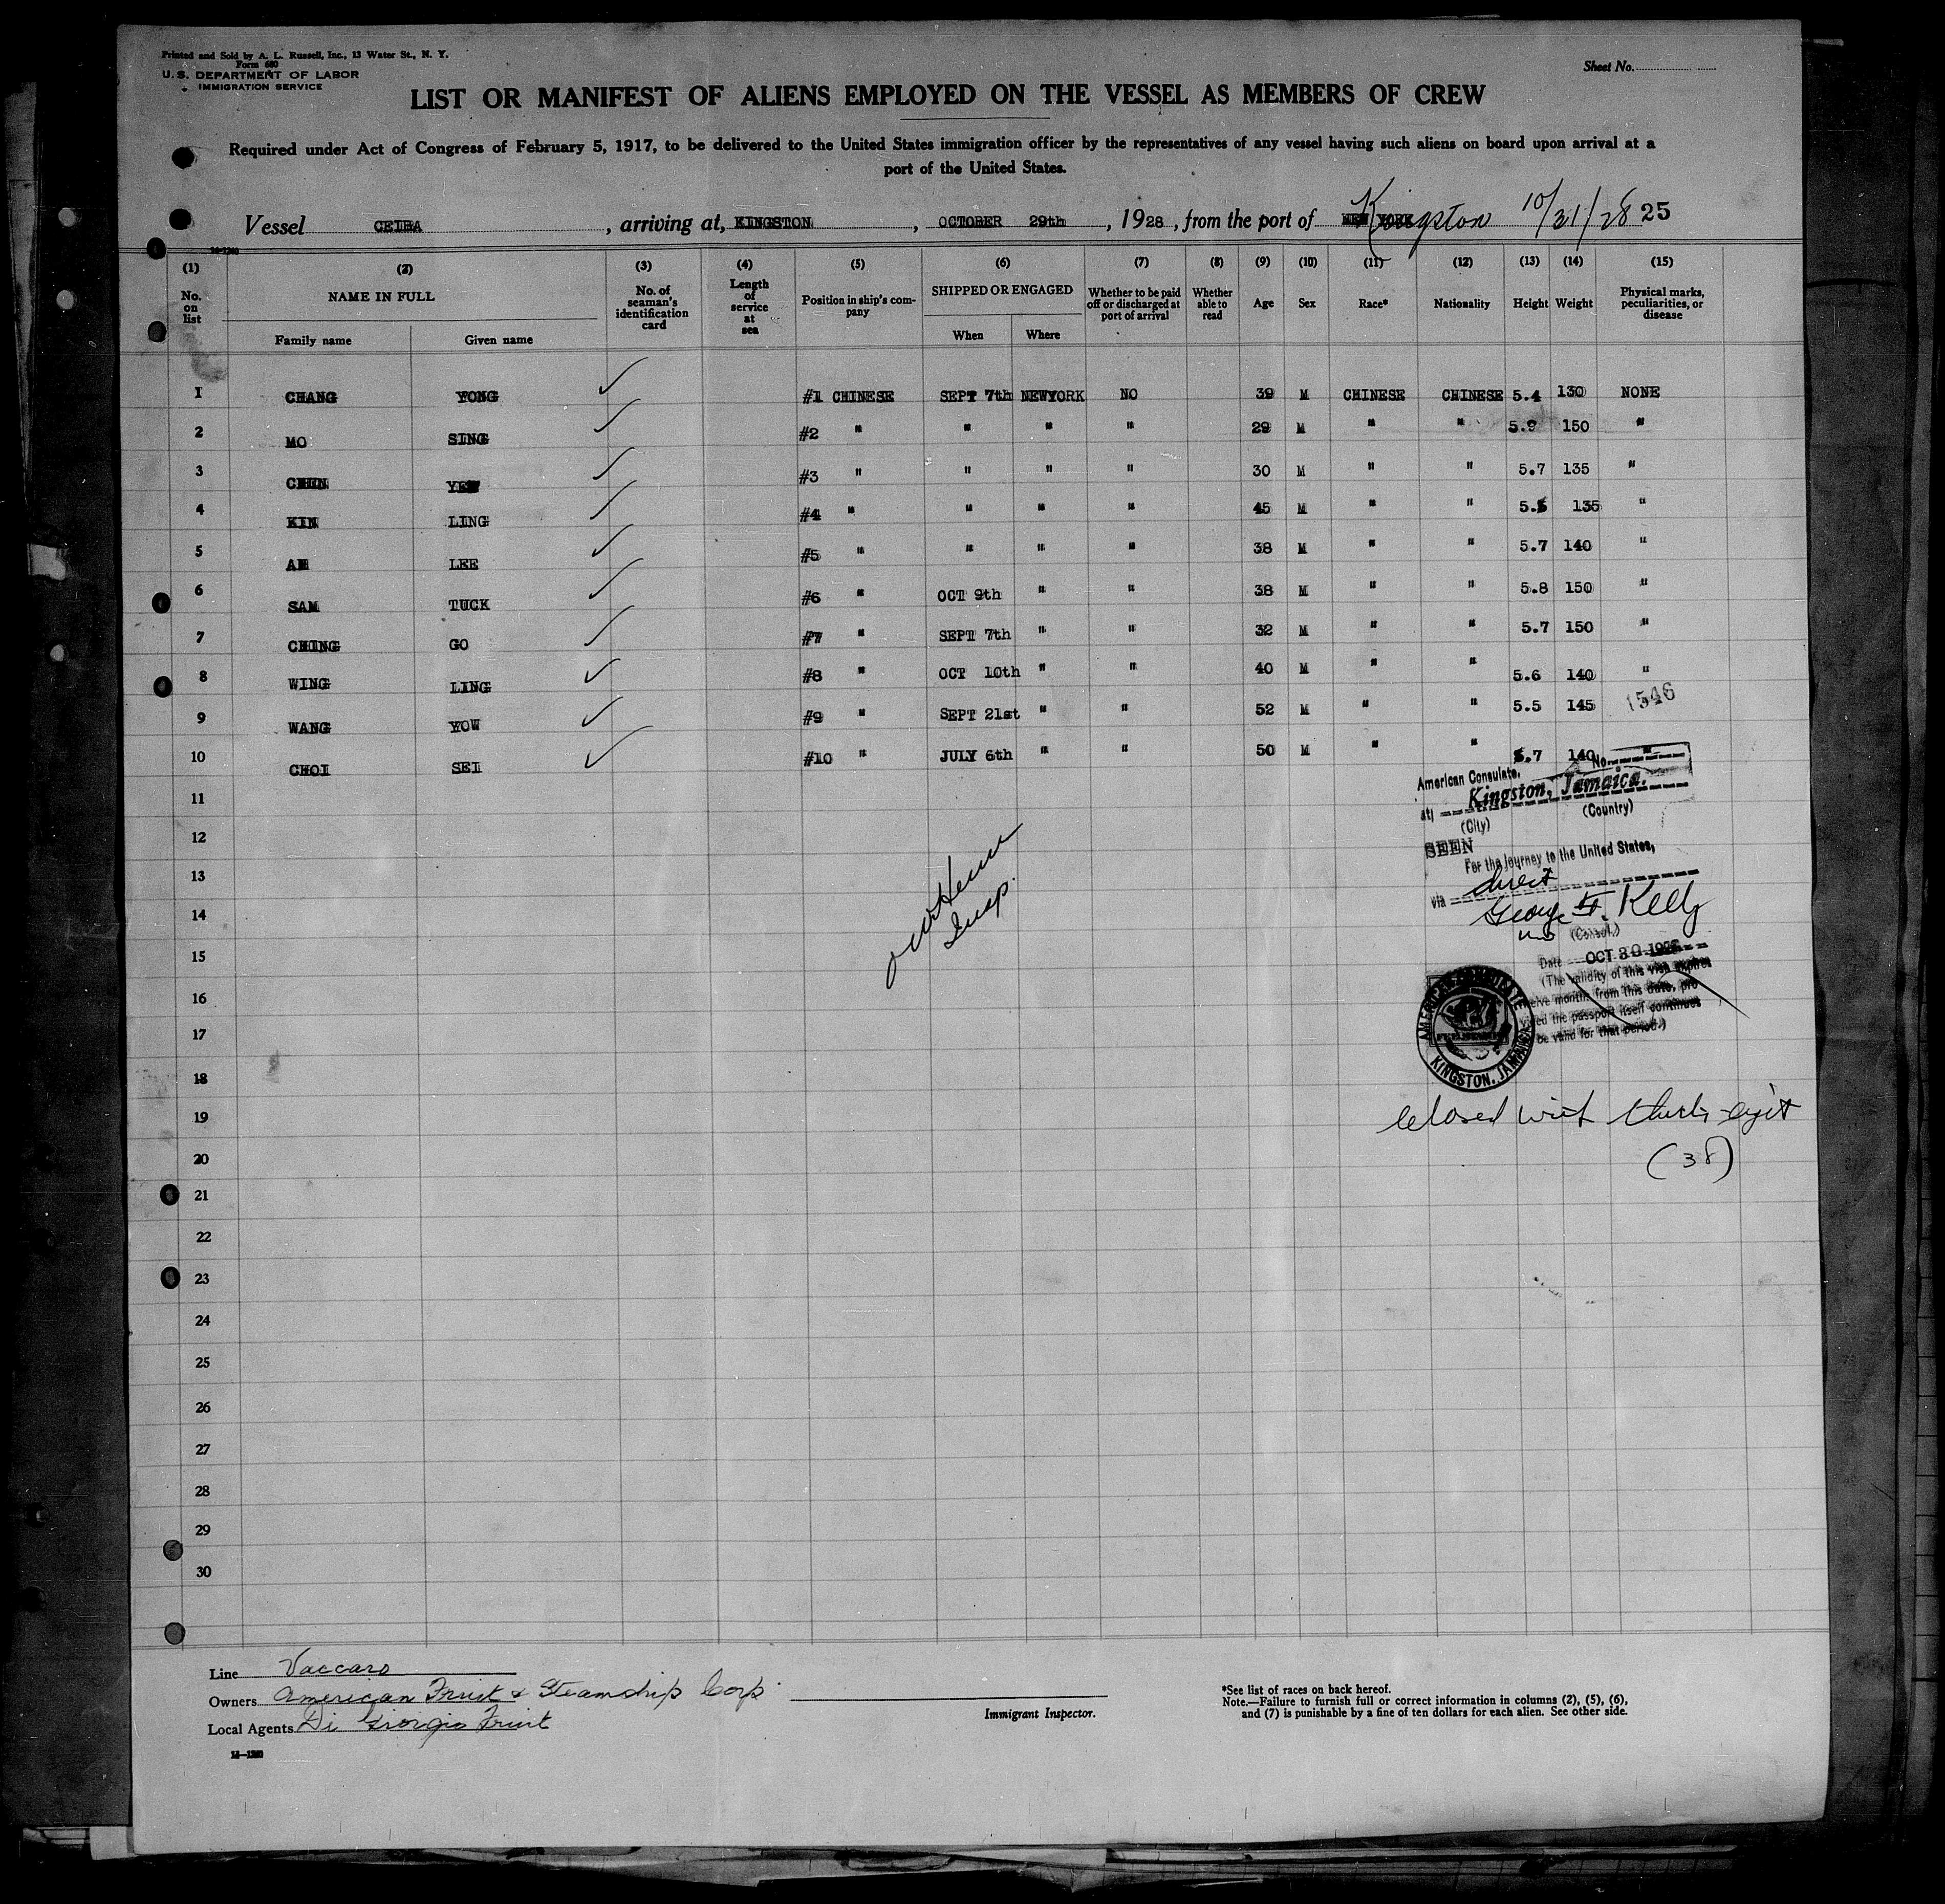 Printed and Sold by A. L. Russell, Inc., 13 Water St., N. Y.
Form 680
U. S. DEPARTMENT OF LABOR
IMMIGRATION SERVICE
Sheet No.
LIST OR MANIFEST OF ALIENS EMPLOYED ON THE VESSEL AS MEMBERS OF CREW
Required under Act of Congress of February 5, 1917, to be delivered to the United States immigration officer by the representatives of any vessel having such aliens on board upon arrival at a
port of the United States.
Vessel CEIBA, arriving at, KINGSTON, OCTOBER 29th, 1928, from the port of NEW YORK Kingston 10/31/28 25
(1) (2) (3) (4) (5) (6) (7) (8) (9) (10) (11) (12) (13) (14) (15)
No. on list NAME IN FULL Family name Given name No. of seaman's identification card Length of service at sea Position in ship's company SHIPPED OR ENGAGED When Where Whether to be paid off or discharged at port of arrival Whether able to read Age Sex Race* Nationality Height Weight Physical marks, peculiarities, or disease
1 CHANG YONG #1 CHINESE SEPT 7th NEWYORK NO 39 M CHINESE CHINESE 5.4 130 NONE
2 MO SING #2 " " " " 29 M " " 5.9 150 "
3 CHUN YEW #3 " " " " 30 M " " 5.7 135 "
4 KIN LING #4 " " " " 45 M " " 5. 135 "
5 AH LEE #5 " " " " 38 M " " 5.7 140 "
6 SAM TUCK #6 " OCT 9th " " 38 M " " 5.8 150 "
7 CHING GO #7 " SEPT 7th " " 32 M " " 5.7 150 "
8 WING LING #8 " OCT 10th " " 40 M " " 5.6 140 "
9 WANG YOW #9 " SEPT 21st " " 52 M " " 5.5 145 1546
10 CHOI SEI #10 " JULY 6th " " 50 M " " 5.7 140
11
12
13
14
15
16
17
18
19
20
21
22
23
24
25
26
27
28
29
30
Insp.
American Consulate, No.
at Kingston, Jamaica.
(City) (Country)
SEEN
For the journey to the United States,
via direct
George F. Kelly
(Consul.)
Date OCT 30 1928
(The validity of this visa expires
twelve months from this date, pro
vided the passport itself continues
be valid for that period.)
AMERICAN CONSULATE
KINGSTON, JAMAICA
Closed with thirty-eight
(38)
Line Vaccaro
Owners American Fruit & Steamship Corp.
Local Agents Di Giorgio Fruit
Immigrant Inspector.
*See list of races on back hereof.
Note.—Failure to furnish full or correct information in columns (2), (5), (6),
and (7) is punishable by a fine of ten dollars for each alien. See other side.